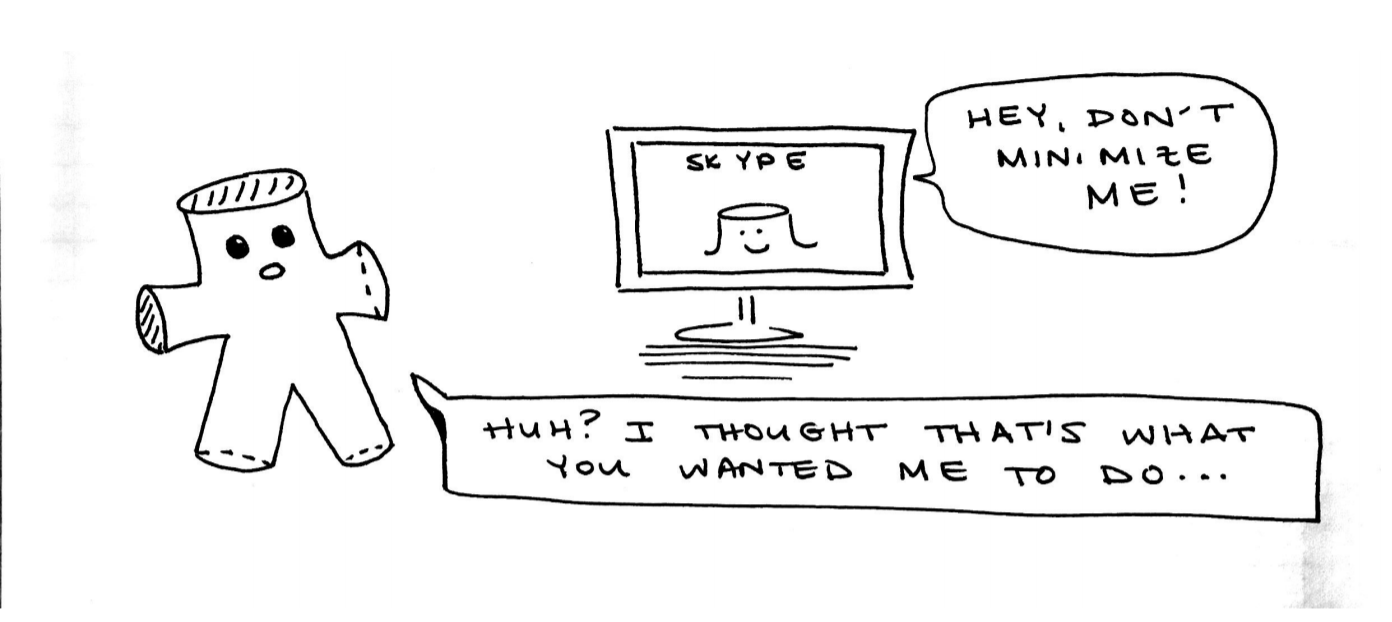 SKYPE
HEY, DON'T
MINIMIZE
ME!
HUH? I THOUGHT THAT'S WHAT
YOU WANTED ME TO DO...